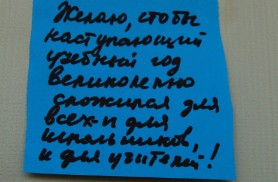 Желаю, чтобы
наступающий
учебный год
великолепно
сложился для
всех - и для
школьников,
и для учителей!